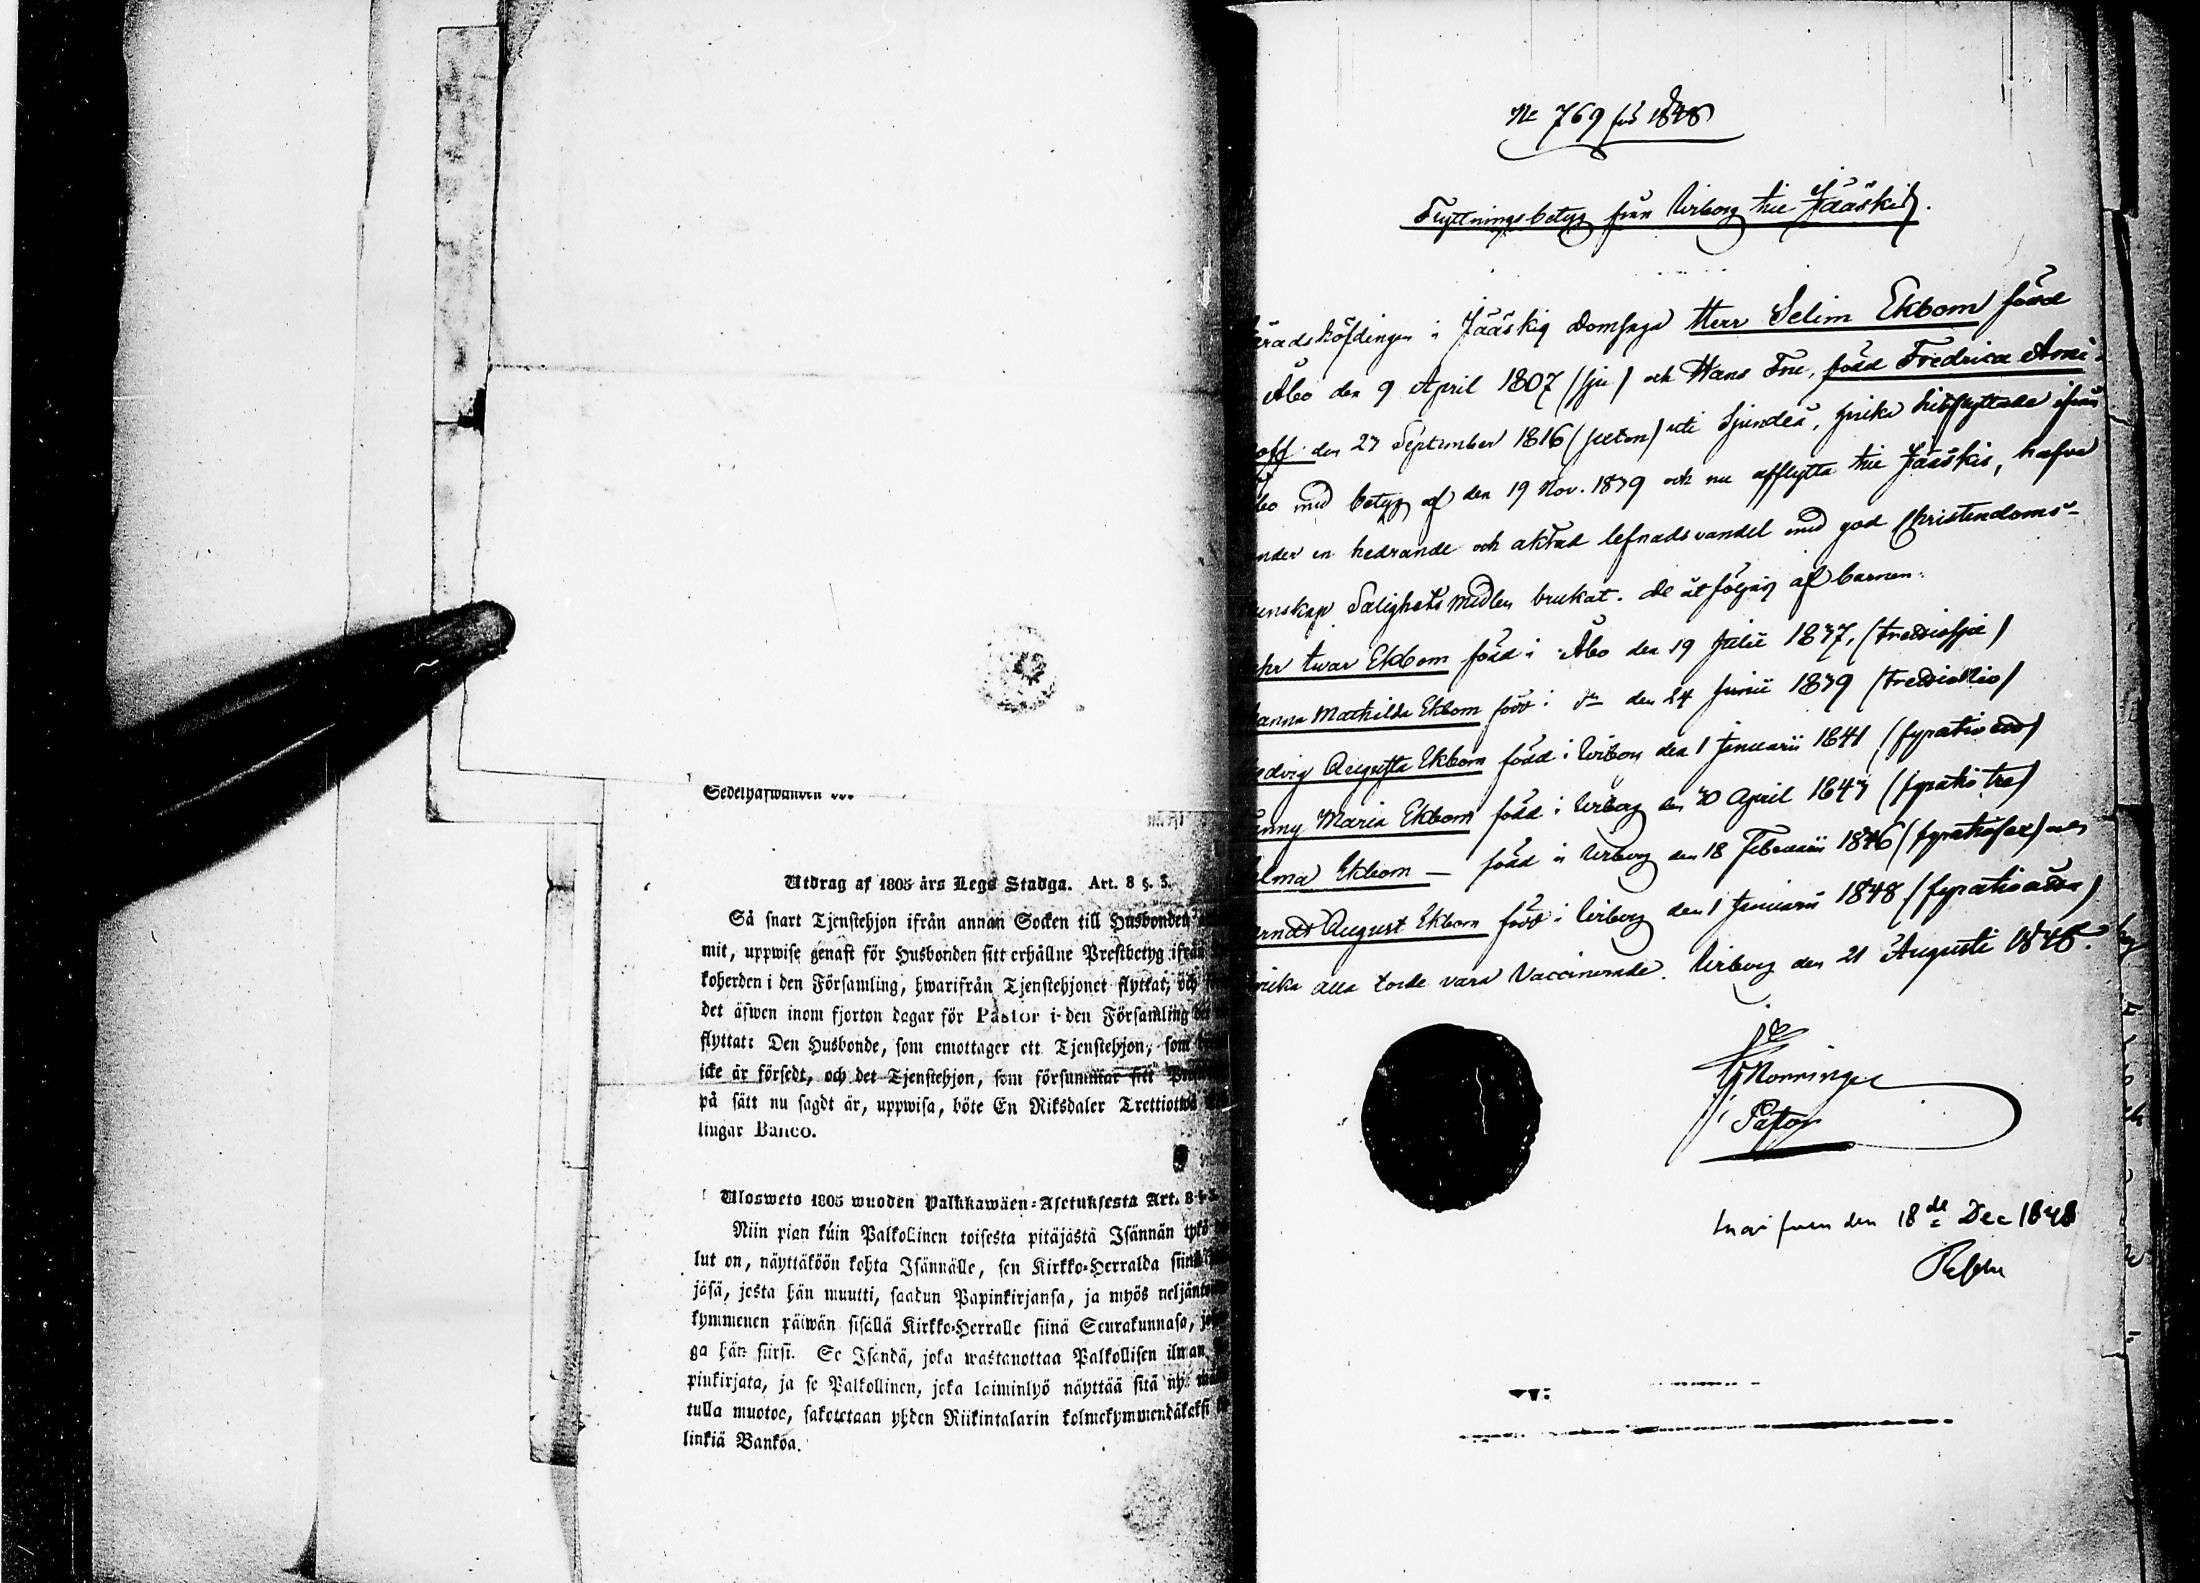 Sedelhafwanden
Utdrag af 1805 års Lego Stadga. Art. 8 §. 5.
Så snart Tjenstehjon ifrån annan Socken till Husbonden
mit, uppwise genast för Husbonden sitt erhållne Prestbetyg ifrån
koherden i den Församling, hwarifrån Tjenstehjonet flyttat, och
det äfwen inom fjorton dagar för Pastor i den Församling
flyttat: Den Husbonde, som emottager ett Tjenstehjon, som
icke är försedt, och det Tjenstehjon, som försummar sitt
på sätt nu sagdt är, uppwisa, böte En Riksdaler Trettiotwå
lingar Banco.
Ulosweto 1805 wuoden Palkkawäen-Asetuksesta Art. 8 §
Niin pian kuin Palkollinen toisesta pitäjästä Isännän tykö
lut on, näyttäköön kohta Isännälle, sen Kirkko-Herralda siinä
jäsä, josta hän muutti, saadun Papinkirjansa, ja myös neljän
kymmenen päiwän sisällä Kirkko-Herralle siinä Seurakunnasa,
ga hän siirsi. Se Isändä, joka wastanottaa Palkollisen ilman
pinkirjata, ja se Palkollinen, joka laiminlyö näyttää sitä
tulla muotoa, sakotetaan yhden Riikintalarin kolmekymmendäkaksi
linkiä Bankoa.
No 769 för 1848
Flyttningsbetyg från Wiborg till Jääskis.
äradshöfdingen i Jääskis Domsaga Herr Selim Ekbom född
Åbo den 9 April 1807 (sju) och Hans Fru, född Fredrica Ami-
noff den 23 September 1816 (sexton) uti Sjundeå, hvilka hitflyttade ifrån
Åbo med betyg af den 19 Nov. 1839 och nu afflytta till Jääskis, hafva
under en hedrande och aktad lefnadsvandel med god Christendoms-
unskap Salighets medlen brukat. De åtföljas af barnen:
Ivar Ekbom född i Åbo den 19 Julii 1837, (trettiosju)
anna Mathilda Ekbom född i do den 24 Junii 1839 (trettionio)
edvig Augusta Ekbom född i Wiborg den 1 Januarii 1841 (fyratioett)
anny Maria Ekbom född i Wiborg den 30 April 1843 (fyratiotre)
elma Ekbom — född i Wiborg den 18 Februarii 1846 (fyratiosex) och
erndt August Ekbom född i Wiborg den 1 Januarii 1848 (fyratioåtta)
hvilka alla torde vara Vaccinerade. Wiborg den 21 Augusti 1848.
Pastor
den 18de Dec 1848